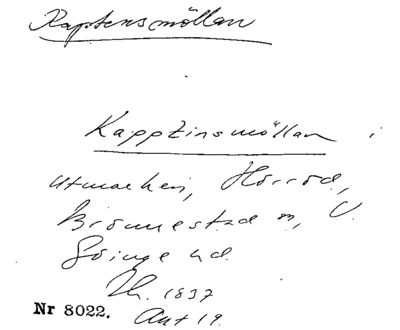 Kaptensmöllan
Kapptinsmöllan i
Utmarken, Hörröd,
Brönnestad sn, V.
Göinge hd.
Lh. 1837
Nr 8022. Akt 19.